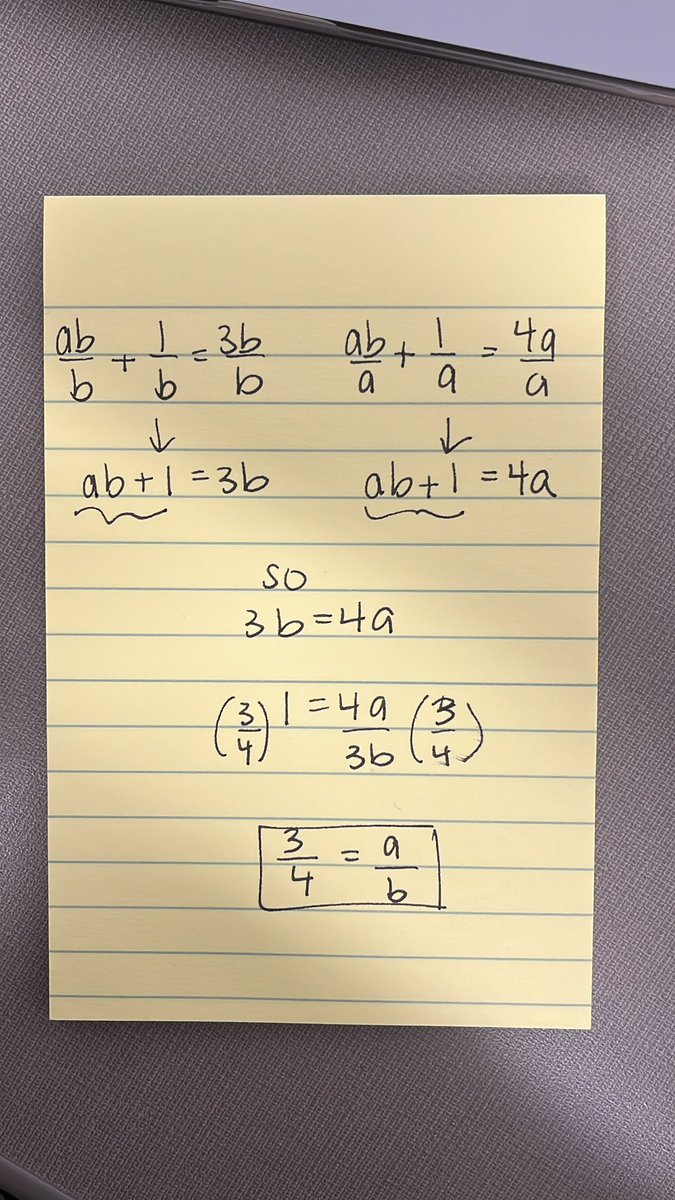 ab/b + 1/b = 3b/b    ab/a + 1/a = 4a/a
↓    ↓
ab+1 = 3b    ab+1 = 4a
so
3b = 4a
(3/4) 1 = 4a/3b (3/4)
3/4 = a/b